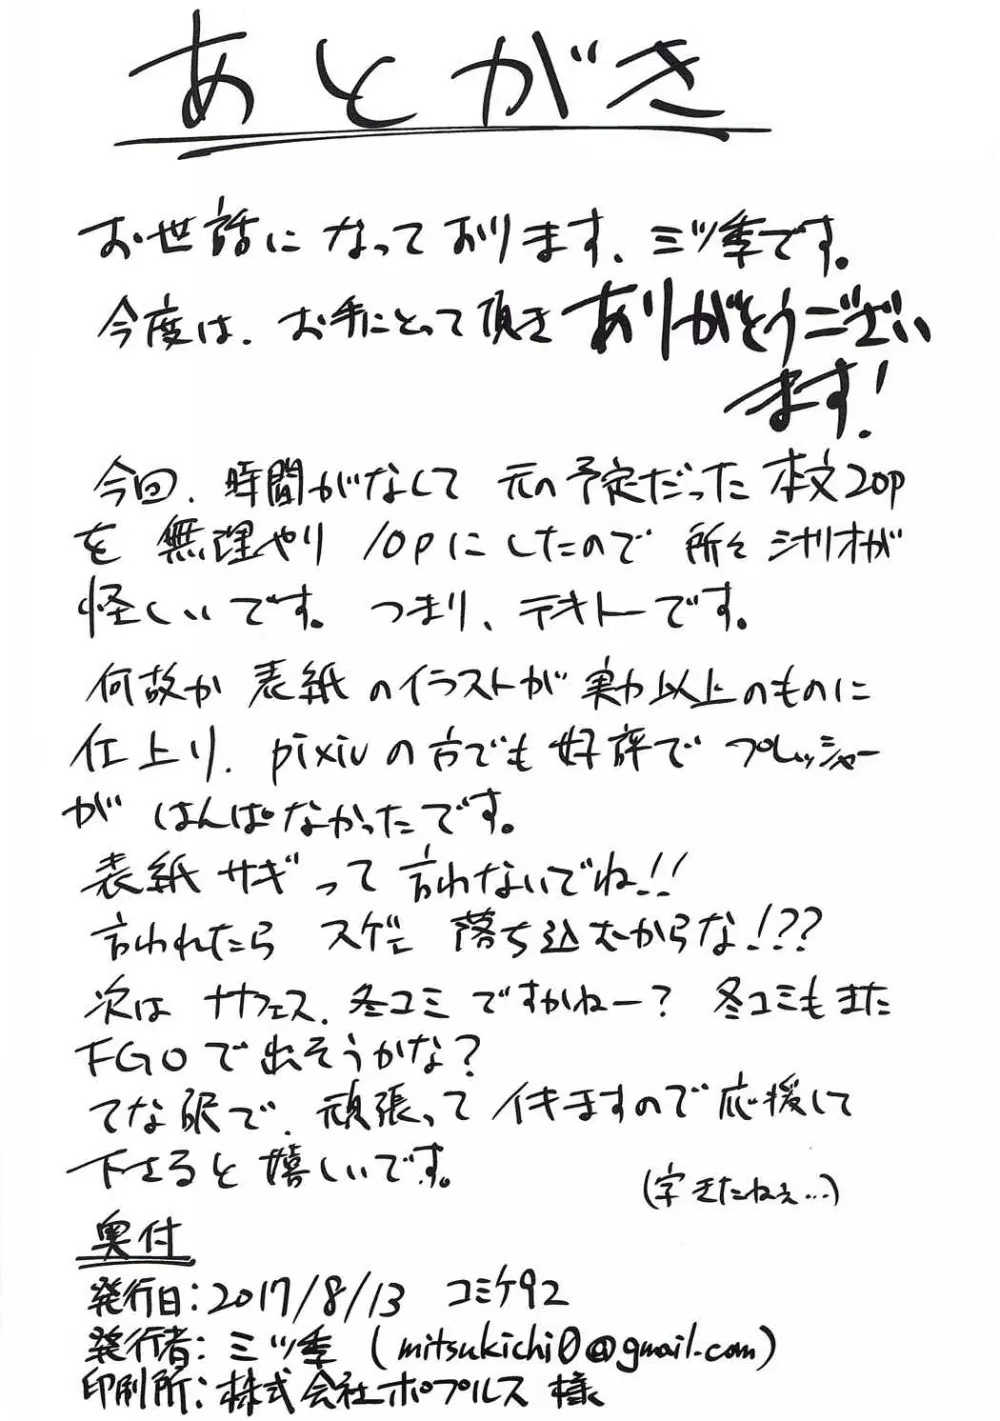 あとがき
お世話になっております、三ツ季です。
今度は、お手にとって頂きありがとうござい
ます!
今回、時間がなくて元の予定だった本文20p
を無理やり10pにしたので所々シナリオが
怪しいです。つまり、テキトーです。
何故か表紙のイラストが実力以上のものに
仕上り、pixivの方でも好評でプレッシャー
がはんぱなかったです。
表紙サギって言わないでね!!
言われたらスゲェ落ち込むからな!??
次はサンフェス、冬コミですかねー?冬コミもまた
FGOで出そうかな?
てな訳で、頑張ってイキますので応援して
下さると嬉しいです。
(字きたねぇ…)
奥付
発行日:2017/8/13 コミケ92
発行者:三ツ季(mitsukichi0@gmail.com)
印刷所:株式会社ポプルス様